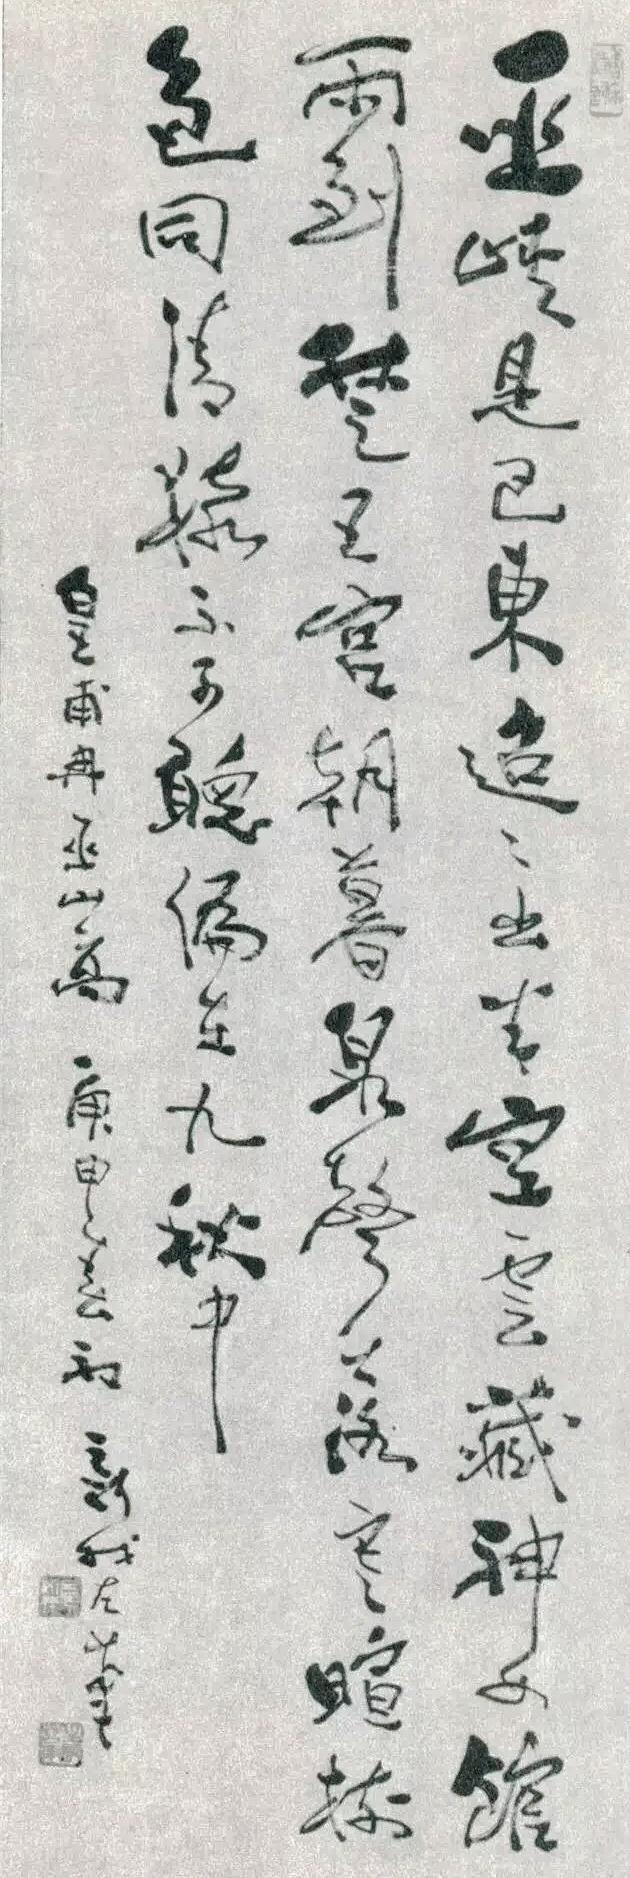 巫峽是巴東迢〻出半空雲藏神女館
雨到楚王宮朝暮泉聲落寒暄樹
色同清猿不可聽偏在九秋中
皇甫冉巫山高 庚申春初 新我左筆